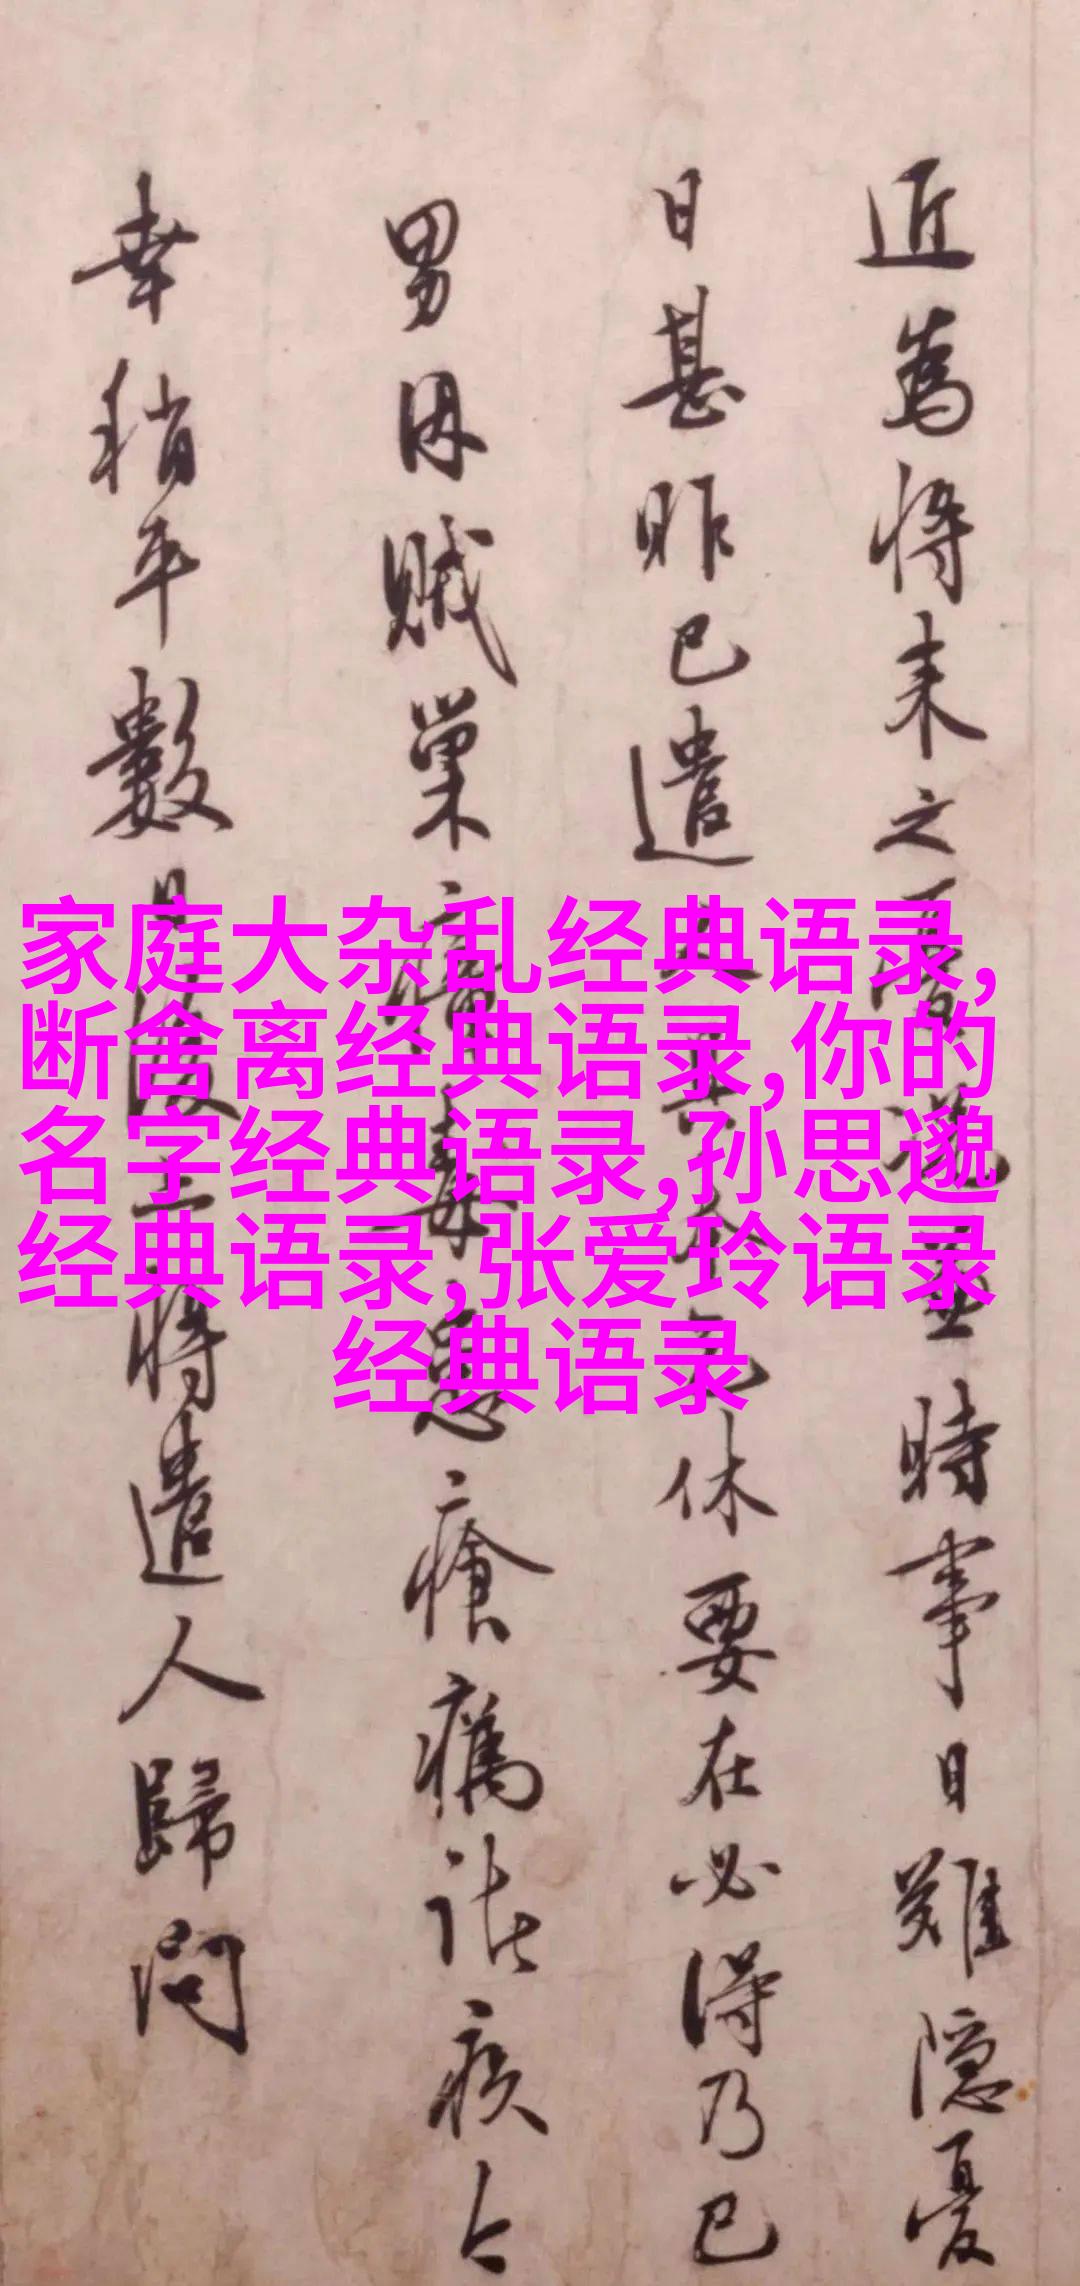 家庭大杂乱经典语录,
断舍离经典语录,你的
名字经典语录,孙思邈
经典语录,张爱玲语录
经典语录
近為將來之
時事日難隱憂
日甚昨已遣
休要在必得乃已
男因賊巢
瘡瘍諸疾今
幸稍平數日
將遣人歸問